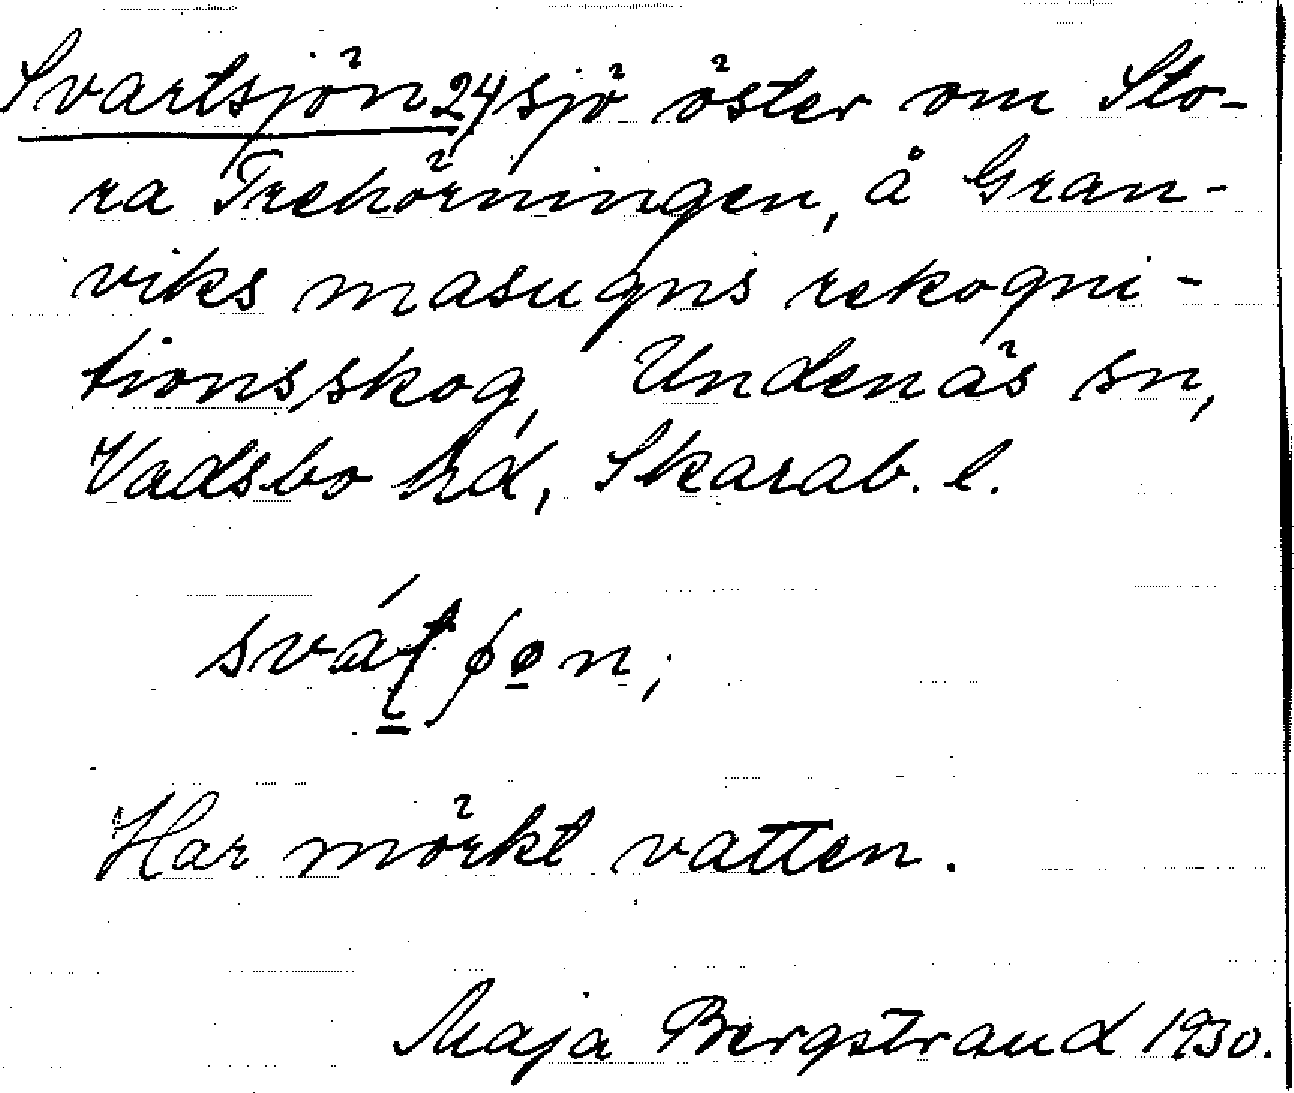 Svartsjön 24 sjö öster om Sto-
ra Trehörningen, å Gran-
viks masugns rekogni-
tionsskog, Undenäs sn,
Vadsbo hd, Skarab. l.
Har mörkt vatten.
Maja Bergstrand 1930.